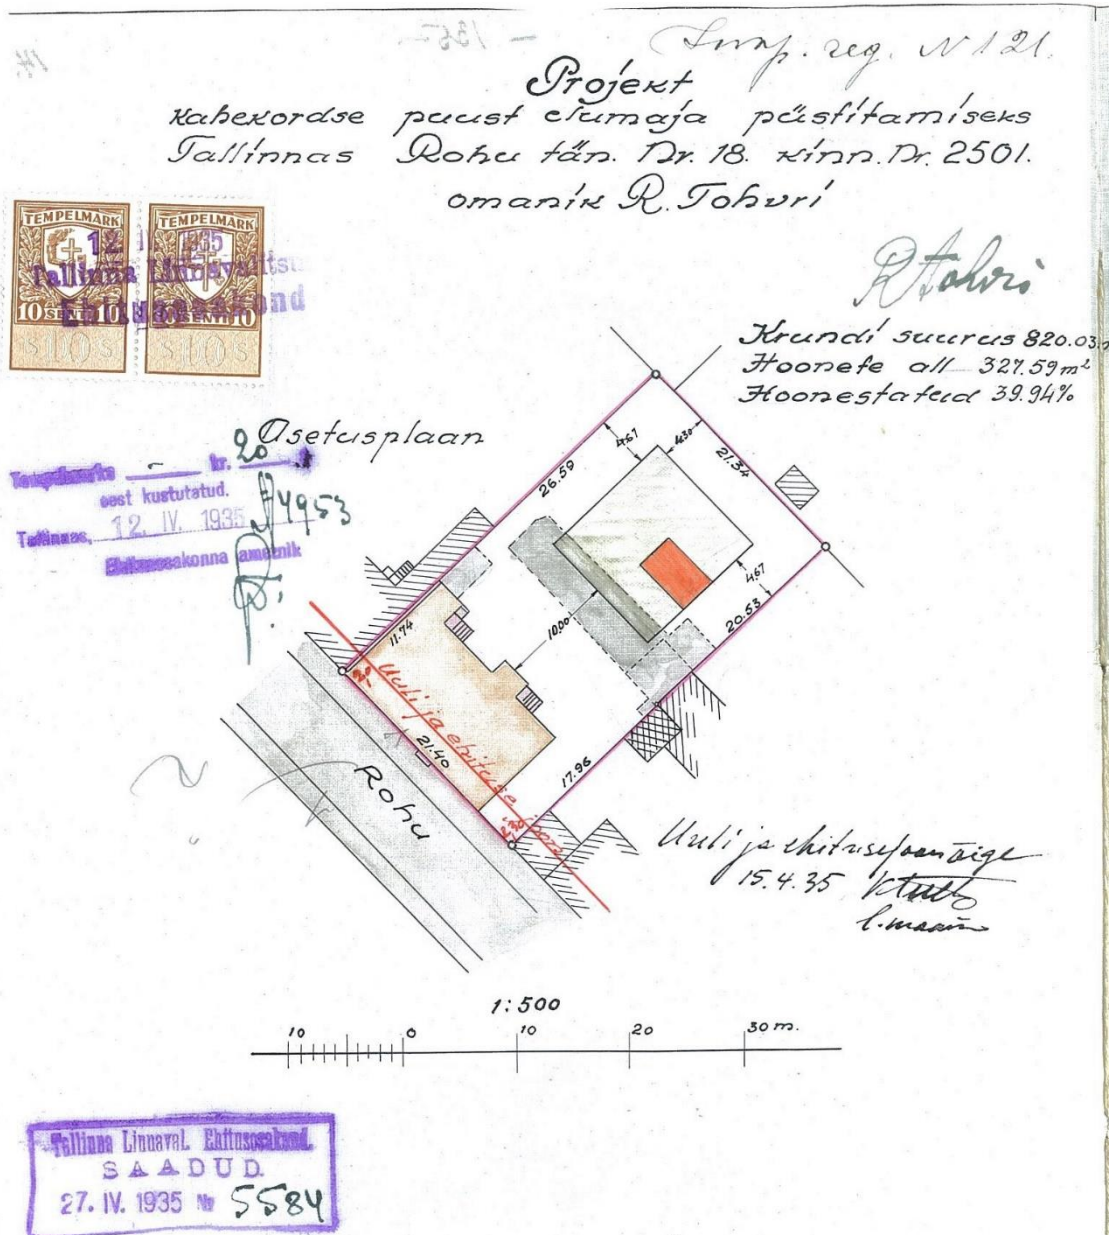 1352
reg. N 121.
Projekt
Kahekordse puust elumaja püstitamiseks
Tallinnas Rohu tän. Nr. 18. kinn. Nr. 2501.
omanik R. Tohvri
TEMPELMARK TEMPELMARK
12. 1935
Tallinna Linnavalitsu
Ehitusosakond
10 SENTI 10 10 SENTI 10
S 10 S S 10 S
R Tohvri
Krundi suurus 820.03
Hoonete all 327.59 m²
Hoonestatud 39.94%
Asetusplaan
Tempelmarke - kr. 20
eest kustutatud.
Tallinnas, 12. IV. 1935
4953
Ehitusosakonna ametnik
4.67
4.30
26.59
21.34
4.67
20.53
10.00
11.74
Uuli ja ehituse joon
21.40
17.96
2.30
Rohu
Uuli ja ehituse joon õige
15.4.35
1:500
10 0 10 20 30 m.
Tallinna Linnaval. Ehitusosakond.
SAADUD.
27. IV. 1935 № 5584